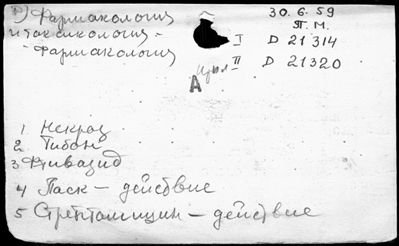 Фармакология 30.6.59
и токсикология - П.М.
- фармакология I D 21314
II D 21320
А
1 Некроз
2 Тибон
3 Фтивазид
4 Паск - действие
5 Стрептомицин - действие